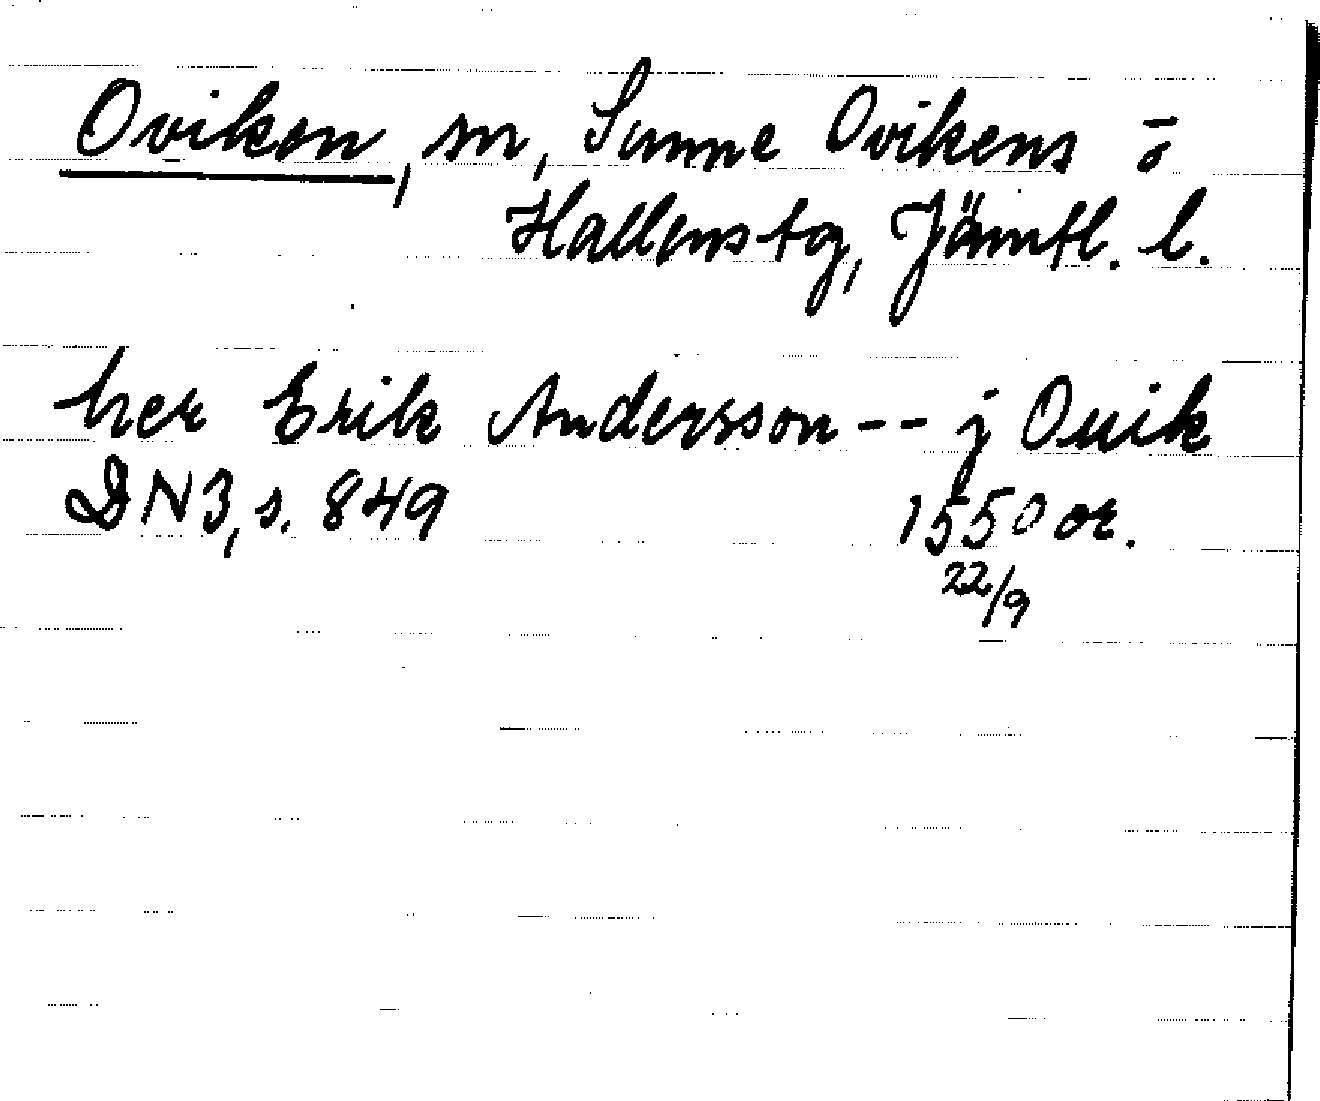 Oviken, sn, Sunne Ovikens o
Hallens tg, Jämtl. l.
her Erik Andersson -- j Ouik
DN 3, s. 849 1550 or.
22/9